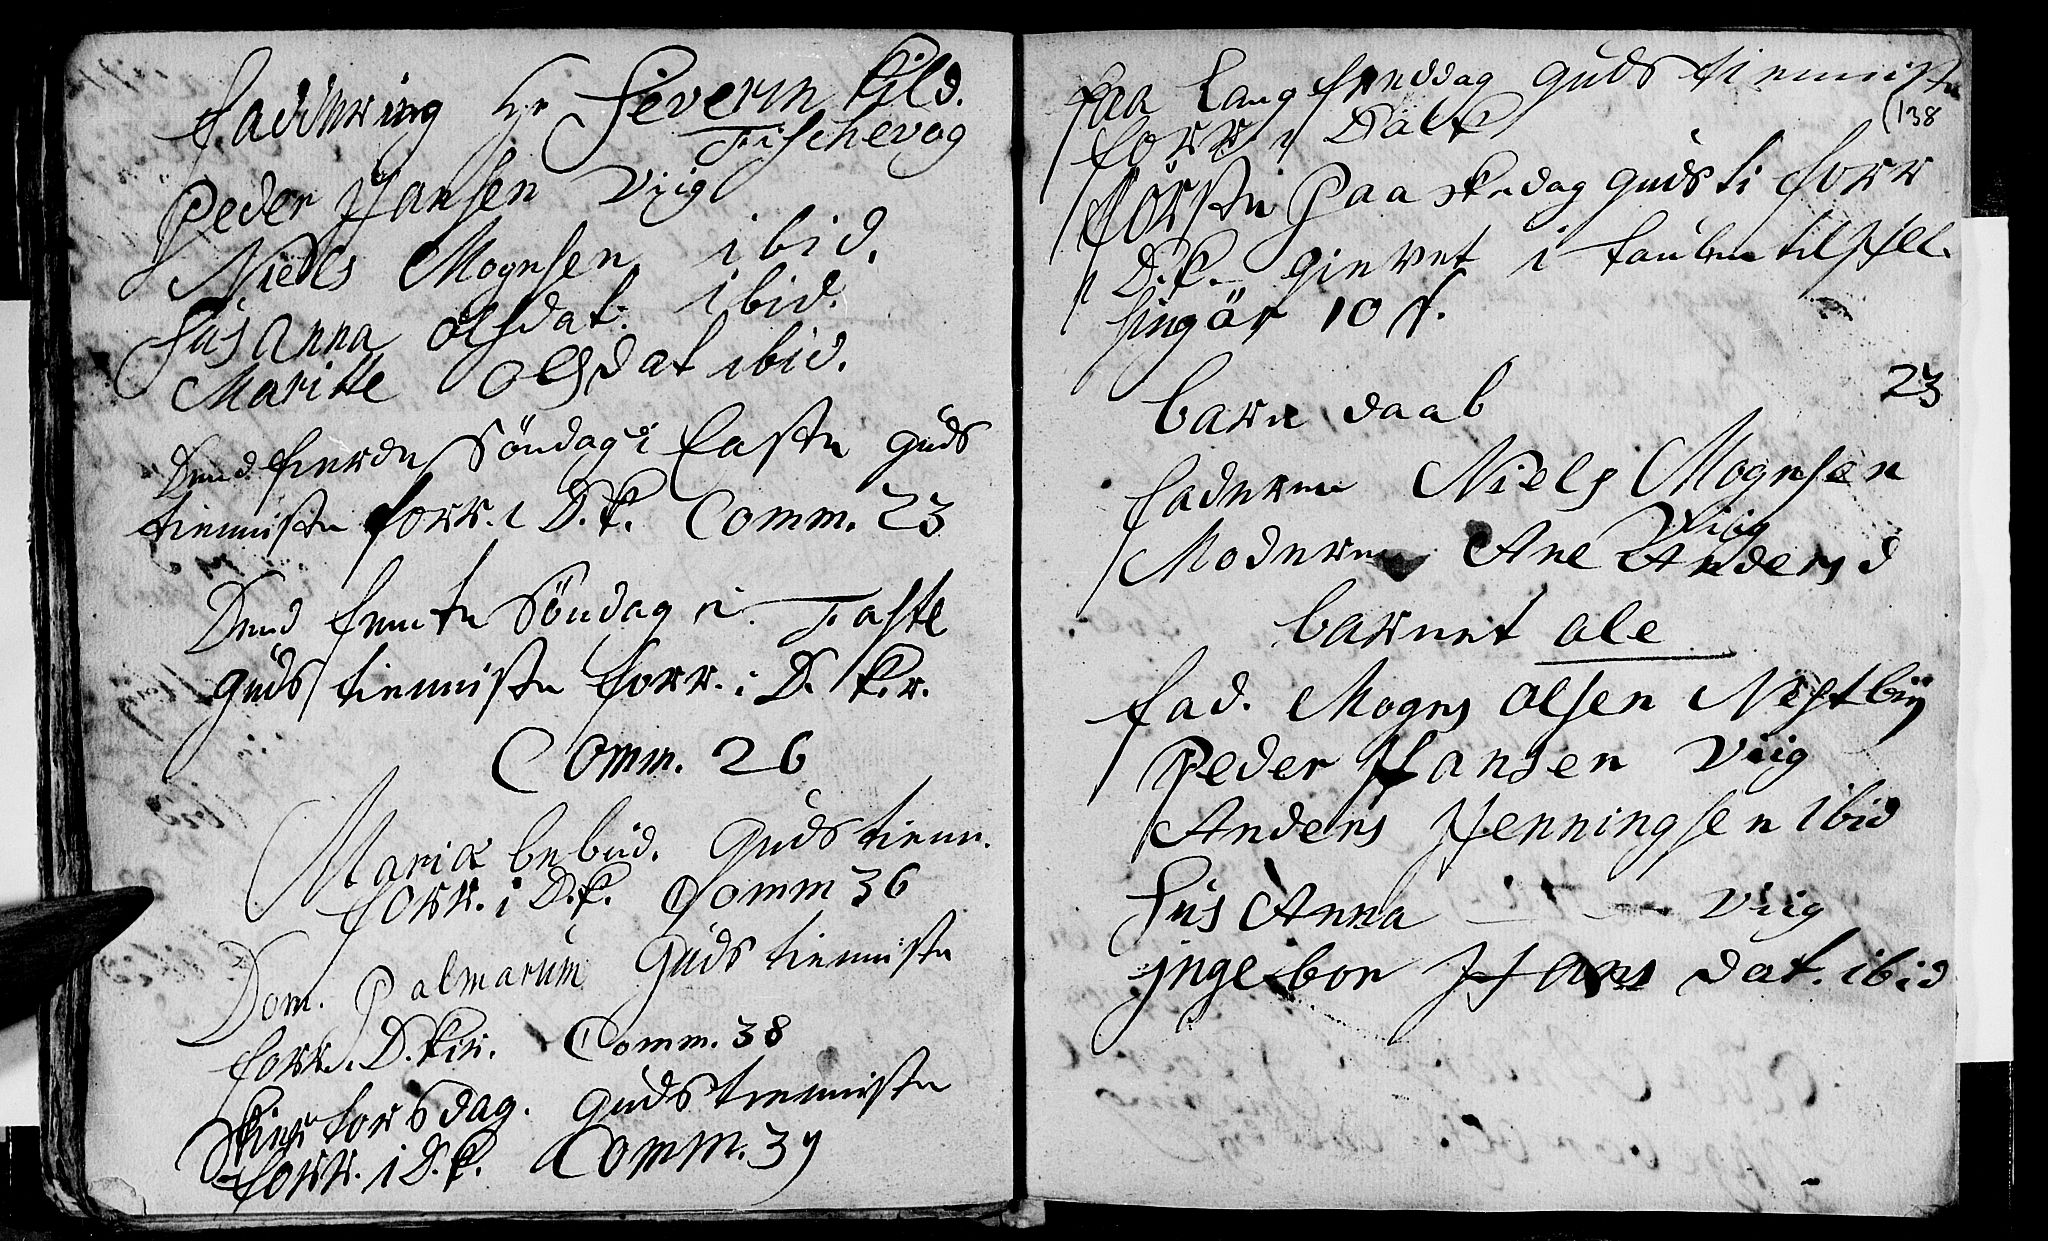 faddering Hr Severin Kild.
Fischevog
Peder Hansen Viig
Niels Mognsen ibid.
Susanna Olsdat. ibid.
Maritte Olsdat ibid.
Dend fierde Söndag i faste Guds
tienniste forr. i D.k. Comm. 23
Dend femte Söndag i Faste
Guds tienniste forr. i D. k.r.
Comm. 26
Mariæ bebud. Guds tienn.
forr. i D.k. Comm 36
Dom. Palmarum Guds tienniste
forr. D. kir. Comm. 38
Skiertorsdag. Guds tienniste
forr. i D.k. Comm. 39
paa Langfreddag Guds tienniste
138
forr i
förste Paaskedag Guds ti forr
i D.k. gievet i taulen til
10
23
barn daab
faderen Niels Mognsen
Viig
Moderen Ane Andersd
barnet Ole
fad. Mogns Olsen Nestbÿ
Peder Hansen Viig
Anders Henningsen ibid
SusAnna — — Viig
jngebor Hans dat. ibid